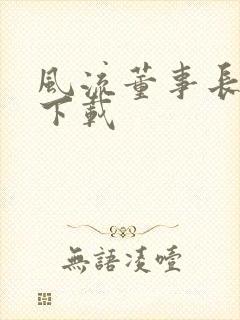 風流董事長
下載
無語凌噎